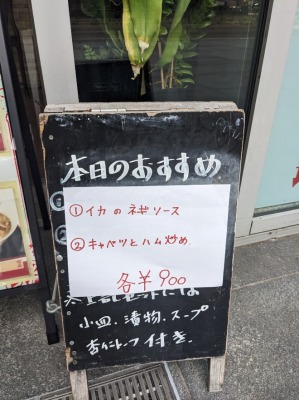 本日のおすすめ
①イカのネギソース
②キャベツとハム炒め
各￥900
小皿.漬物.スープ
付き.